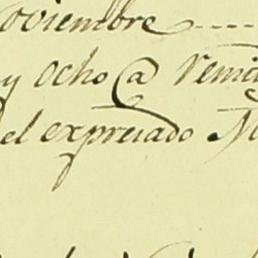 oviembre ----
y ocho @ Remi
el expresado M